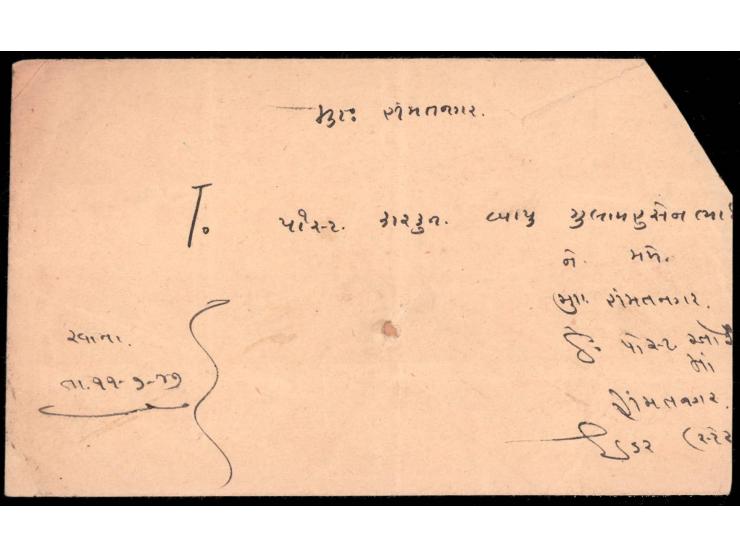 મુ. હીંમતનગર.
T. પોસ્ટ. કારકુન. બાપુ ગુલામહુસેનભાઈ
ને મળે.
મુ. હીંમતનગર.
ઠે. પોસ્ટ ઓફી
માં
હીંમતનગર.
ઈડર (સ્ટે
રવાના.
તા. ૧૧-૭-૪૭